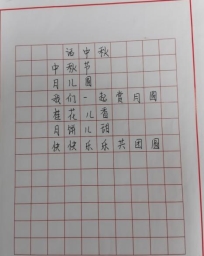 话中秋
中秋节
月儿圆
我们一起赏月圆
桂花儿香
月饼儿甜
快快乐乐共团圆